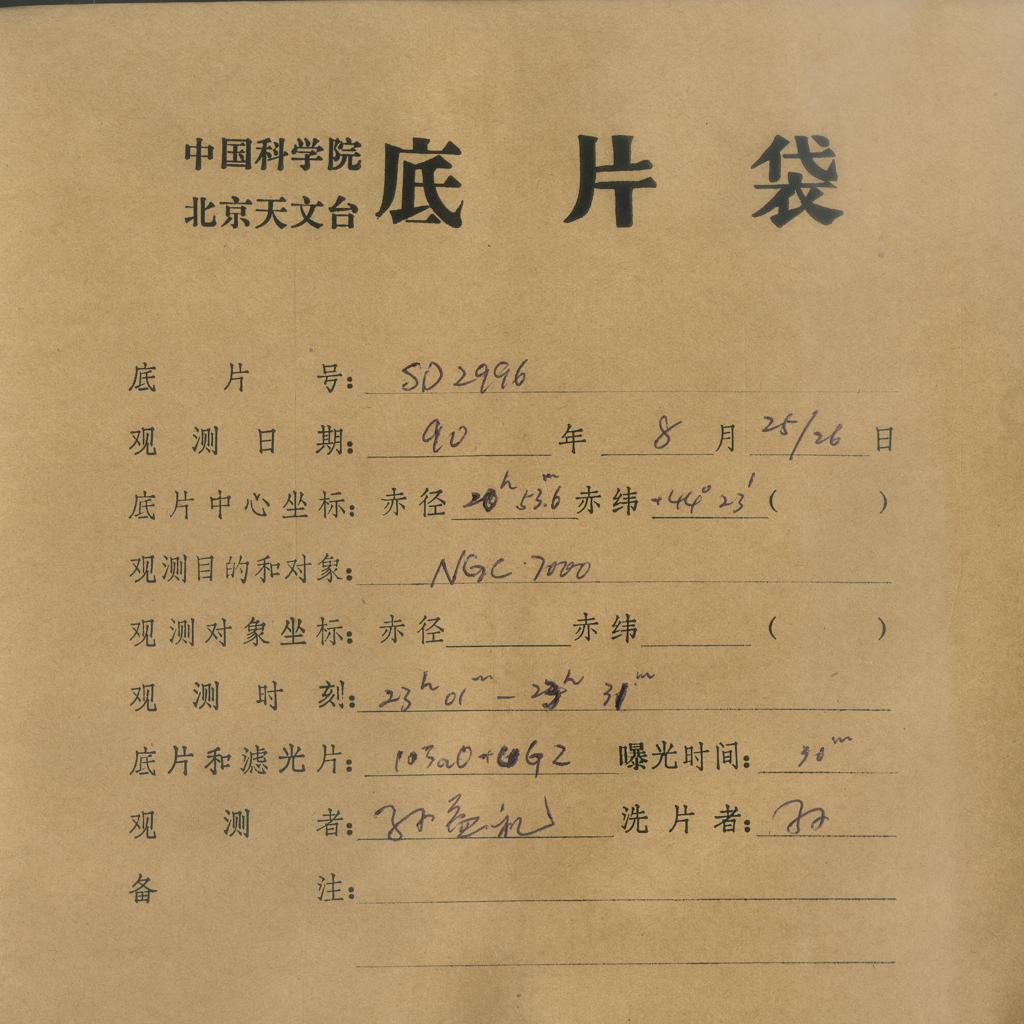 中国科学院
北京天文台
底片袋
底片号: SD2996
观测日期: 90年 8月 25/26日
底片中心坐标: 赤径 20h 53m.6 赤纬 +44° 23′ ( )
观测目的和对象: NGC 7000
观测对象坐标: 赤径 赤纬 ( )
观测时刻: 23h 01m — 23h 31m
底片和滤光片: 103aO+UG2 曝光时间: 30m
观测者: 孙益礼 洗片者: 孙
备注: